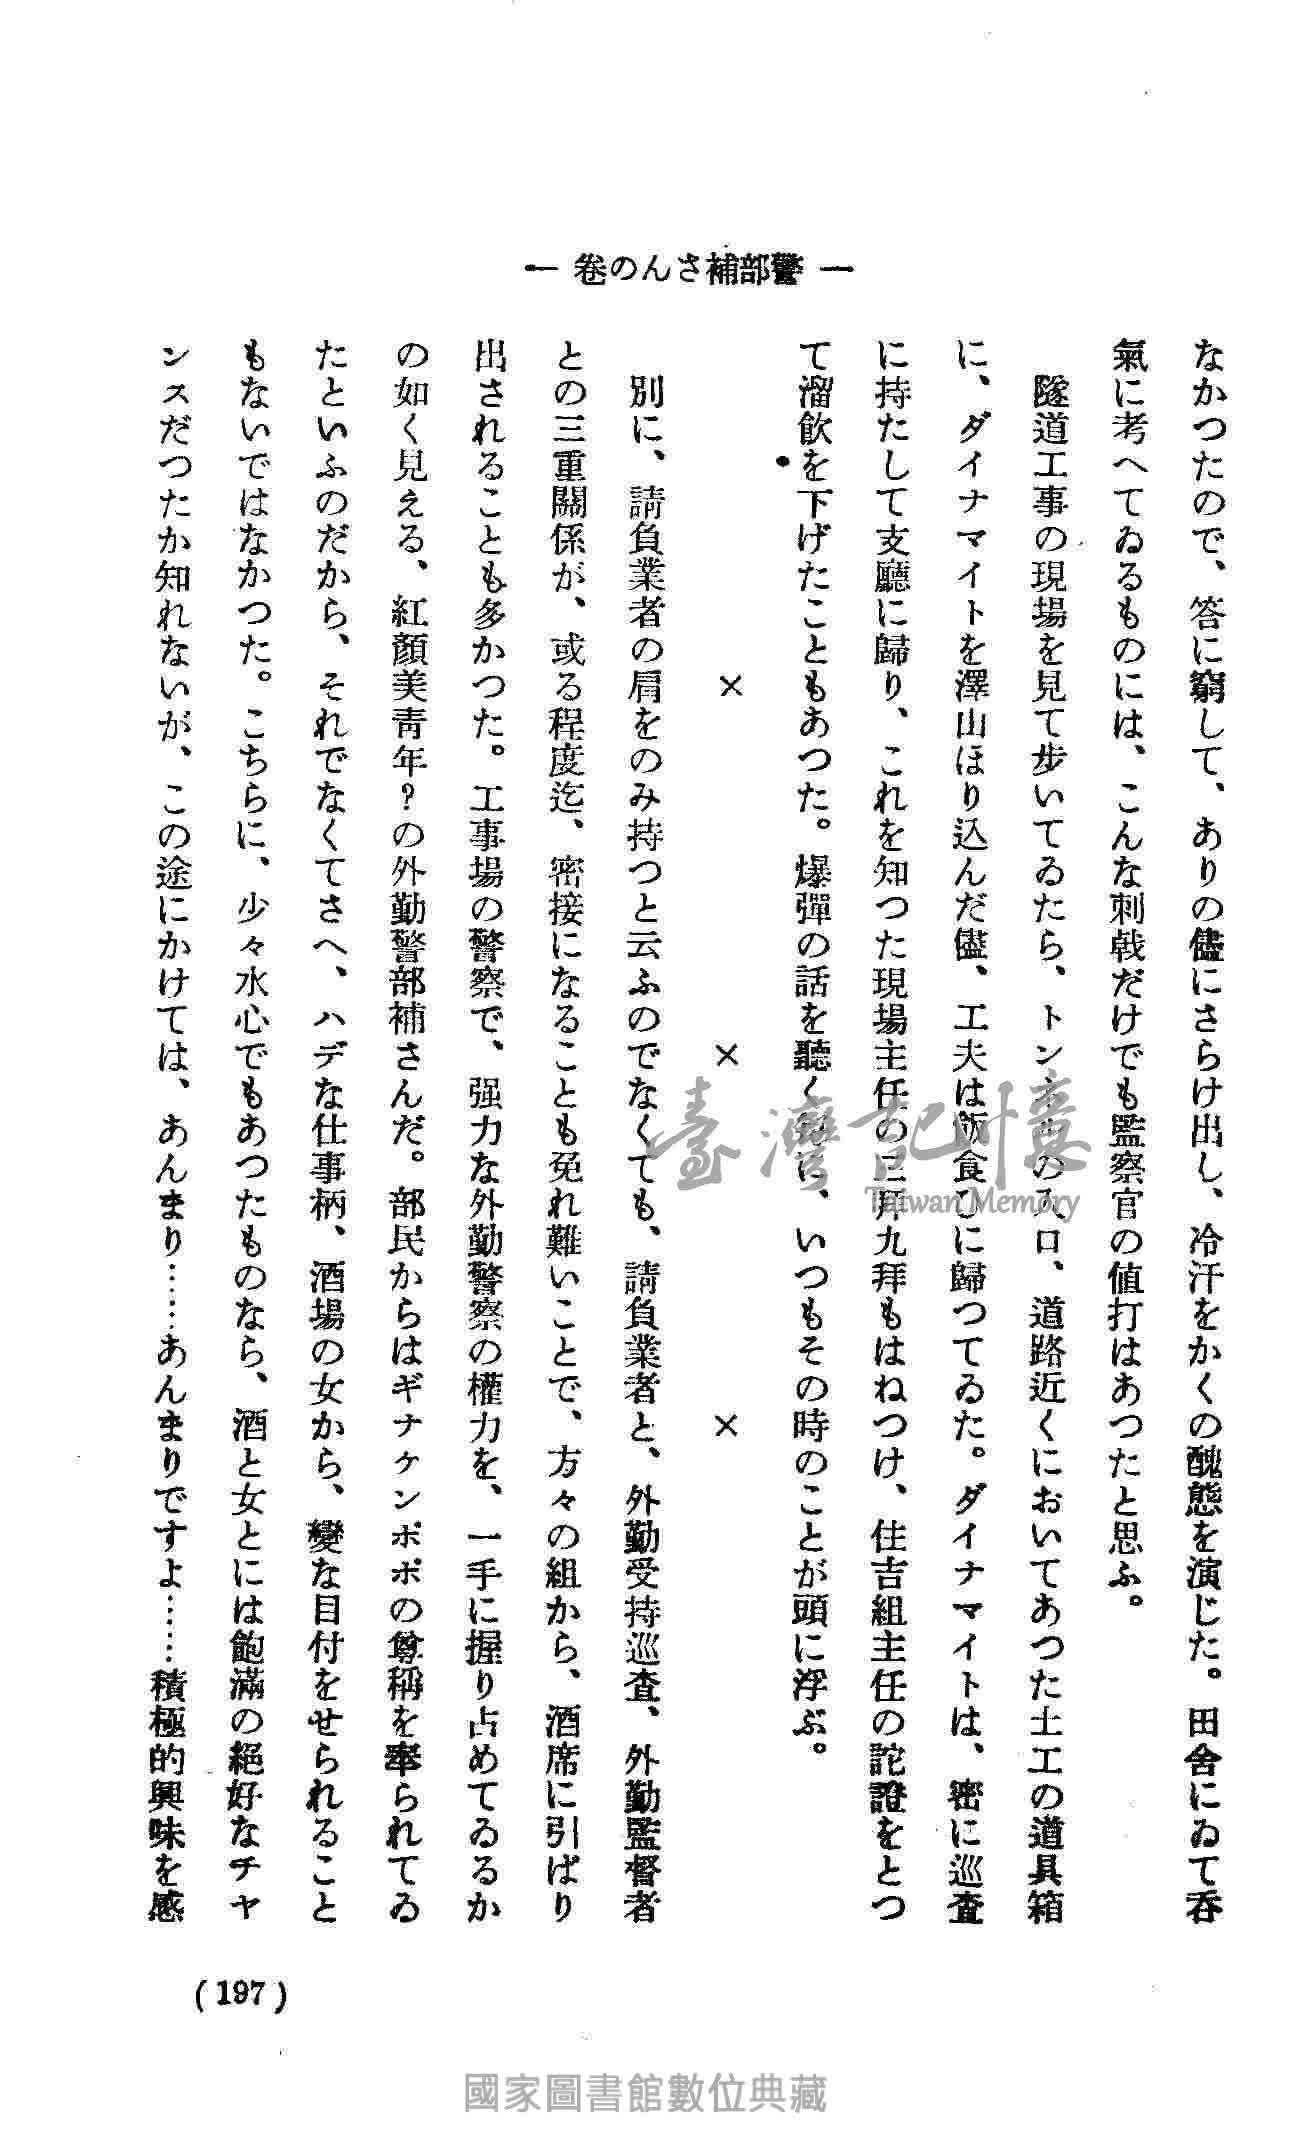 ― 警部補さんの卷 ―
なかつたので、答に窮して、ありの儘にさらけ出し、冷汗をかくの醜態を演じた。田舎にゐて呑
氣に考へてゐるものには、こんな刺戟だけでも監察官の値打はあつたと思ふ。
隧道工事の現場を見て步いてゐたら、トンネルの入口、道路近くにおいてあつた土工の道具箱
に、ダイナマイトを澤山ほり込んだ儘、工夫は飯食ひに歸つてゐた。ダイナマイトは、密に巡査
に持たして支廳に歸り、これを知つた現場主任の三拜九拜もはねつけ、住吉組主任の詑證をとつ
て溜飮を下げたこともあつた。爆彈の話を聽く每に、いつもその時のことが頭に浮ぶ。
× × ×
別に、請負業者の肩をのみ持つと云ふのでなくても、請負業者と、外勤受持巡査、外勤監督者
との三重關係が、或る程度迄、密接になることも免れ難いことで、方々の組から、酒席に引ぱり
出されることも多かつた。工事場の警察で、强力な外勤警察の權力を、一手に握り占めてゐるか
の如く見える、紅顏美靑年?の外勤警部補さんだ。部民からはギナケンポポの尊稱を奉られてゐ
たといふのだから、それでなくてさへ、ハデな仕事柄、酒場の女から、變な目付をせられること
もないではなかつた。こちらに、少々水心でもあつたものなら、酒と女とには飽滿の絕好なチヤ
ンスだつたか知れないが、この途にかけては、あんまり……あんまりですよ……積極的興味を感
(197)
臺灣記憶
Taiwan Memory
國家圖書館數位典藏